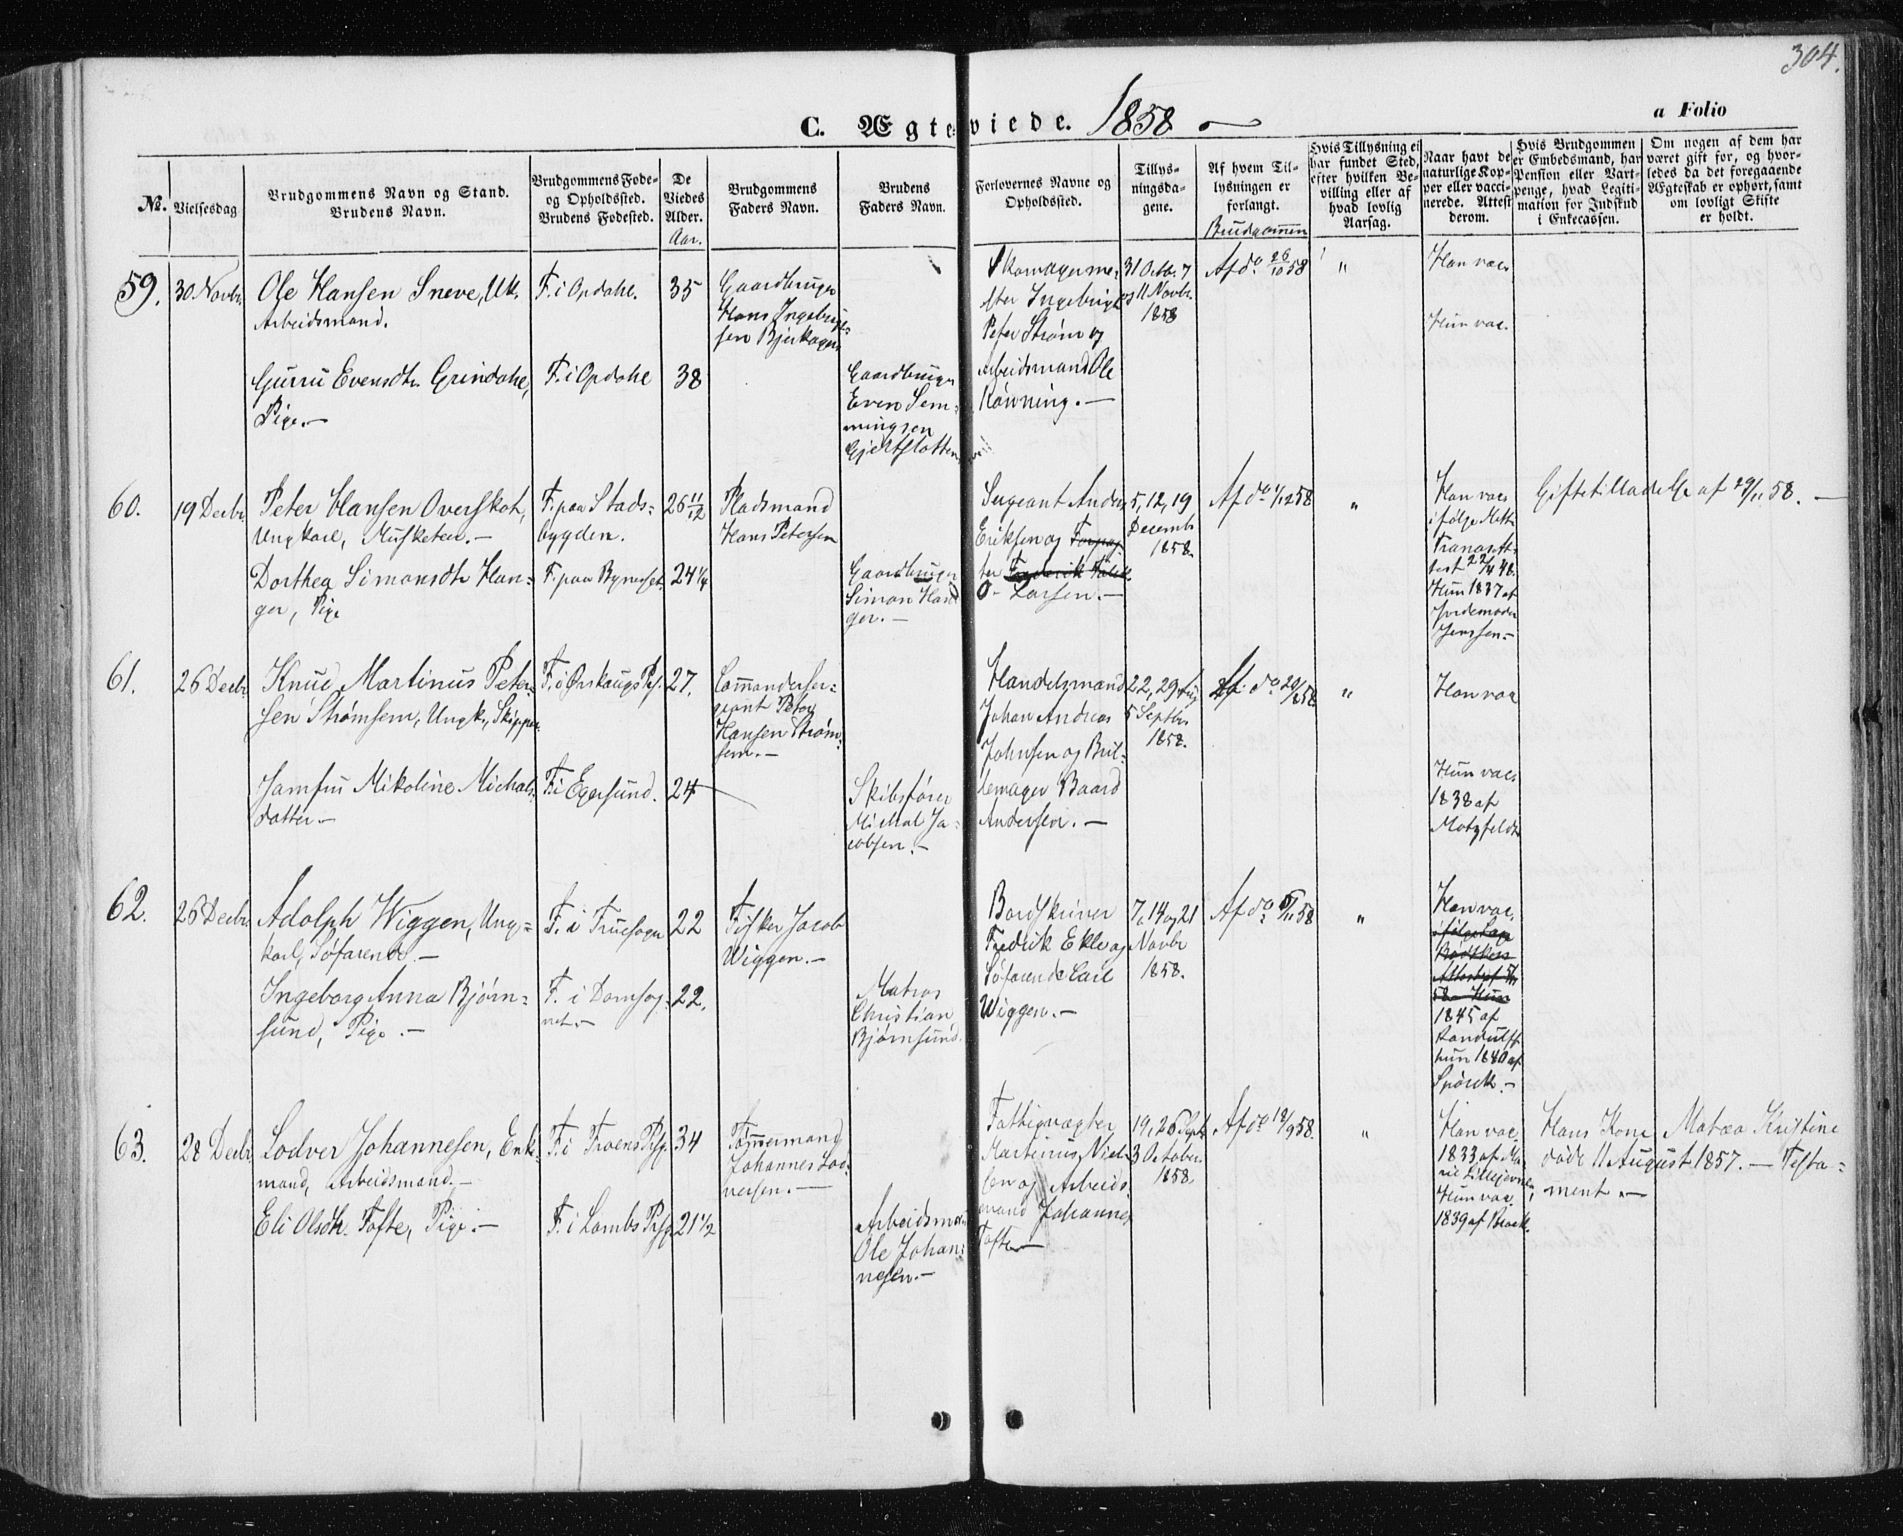 304.
C. Ægteviede. 1858
a Folio
No.
Vielsesdag
Brudgommens Navn og Stand.
Brudens Navn.
Brudgommens Føde-
og Opholdssted.
Brudens Fødested.
De
Viedes
Alder.
Aar.
Brudgommens
Faders Navn.
Brudens
Faders Navn.
Forlovernes Navne og
Opholdssted.
Tillys-
ningsda-
gene.
Af hvem Til-
lysningen er
forlangt.
Brudgommen
Hvis Tillysning ei
har fundet Sted,
efter hvilken Be-
villing eller af
hvad lovlig
Aarsag.
Naar havt de
naturlige Kop-
per eller vacci-
nerede. Attest
derom.
Hvis Brudgommen
er Embedsmand, har
Pension eller Vart-
penge, hvad Legiti-
mation for Indskud
i Enkecassen.
Om nogen af dem har
været gift før, og hvor-
ledes da det foregaaende
Ægteskab er ophørt, samt
om lovligt Skifte
er holdt.
59.
30 Novbr.
Ole Hansen Sneve, Uk.
Arbeidsmand.
Gurru Evensdtr. Grindahl,
Pige.
F. i Opdahl.
F. i Opdahl
35
38
Gaardbruger
Hans Ingebrigt-
sen Bjerkager
Gaardbruger
Even Sem-
mingsen
Skomagerme-
ster Ingebrigt
Peter Strøm og
Arbeidsmand Ole
Rønning.
31 Octbr. 7
og 11 Novbr.
1858
Af do 26/10 58
"
Han vac.
Hun vac.
60.
19 Decbr.
Peter Hansen Overskot,
Ungkarl, Musketeer.
Dorthea Simonsdtr Han-
ger, Pige
F. paa Stads-
bygden.
F. paa Bynesset.
26 11/12
24 1/4
Pladsmand
Hans Petersen
Gaardbruger
Simon Han-
ger.
Sergeant Anders
Eriksen og
Larsen.
5, 12, 19
Decembr
1858.
Af do 1/12 58
"
Han vac.
ifølge
Hun 1837 af
Jordemoder
Jenssen.
Giftetilladelse af 29/11 58.
61.
26 Decbr.
Knud Martinus Peter-
sen Strømsem, Ungk., Skipper
Jamfru Mikoline Michals-
datter
F. i Ørskougs Pr.
F. i Egersund.
27.
24
Commandeerser-
geant Peter
Hansen Strøm-
sem.
Skibsfører
Michal Ja-
cobsen.
Handelsmand
Johan Andreas
Johnsen og
Baard
Andersen.
22, 29 Aug
5 Septbr.
1858.
Af do 20/8 58
"
Han vac
Hun vac.
1838 af
Motzfeldt
62.
26 Decbr.
Adolph Wiggen, Ung-
karl, Søfarende.
Ingeborg Anna Bjørn-
sund, Pige.
F. i Fruesogn
F. i Domsog-
net.
22
22.
Fisker Jacob
Wiggen.
Matros
Christian
Bjørnsund.
Bordskriver
Fredrik Ekle og
Søfarende Carl
Wiggen.
7, 14 og 21
Novbr
1858.
Af do 5/11 58
"
Han vac.
1845 af
Randulff
hun 1840 af
Spørck.
63.
28 Decbr.
Lodver Johannesen, Enke-
mand, Arbeidsmand.
Eli Olsdtr. Tofte, Pige.
F. i Froens Prg.
F. i Lombs Prg.
34
21 1/2
Tømmermand
Johannes Lod-
versen.
Arbeidsmand
Ole Johan-
nesen.
Fattigvægter
Martinus Niel-
sen og Arbeids-
mand Johannes
Tofte
19, 26 Septbr
3 October
1858.
Af do 18/9 58.
"
Han vac.
1833 af Ma-
rie Lillejevne,
Hun vac.
1839 af Brock.
Hans Kone Mathea Kristine
døde 11 August 1857. — Testa-
ment.